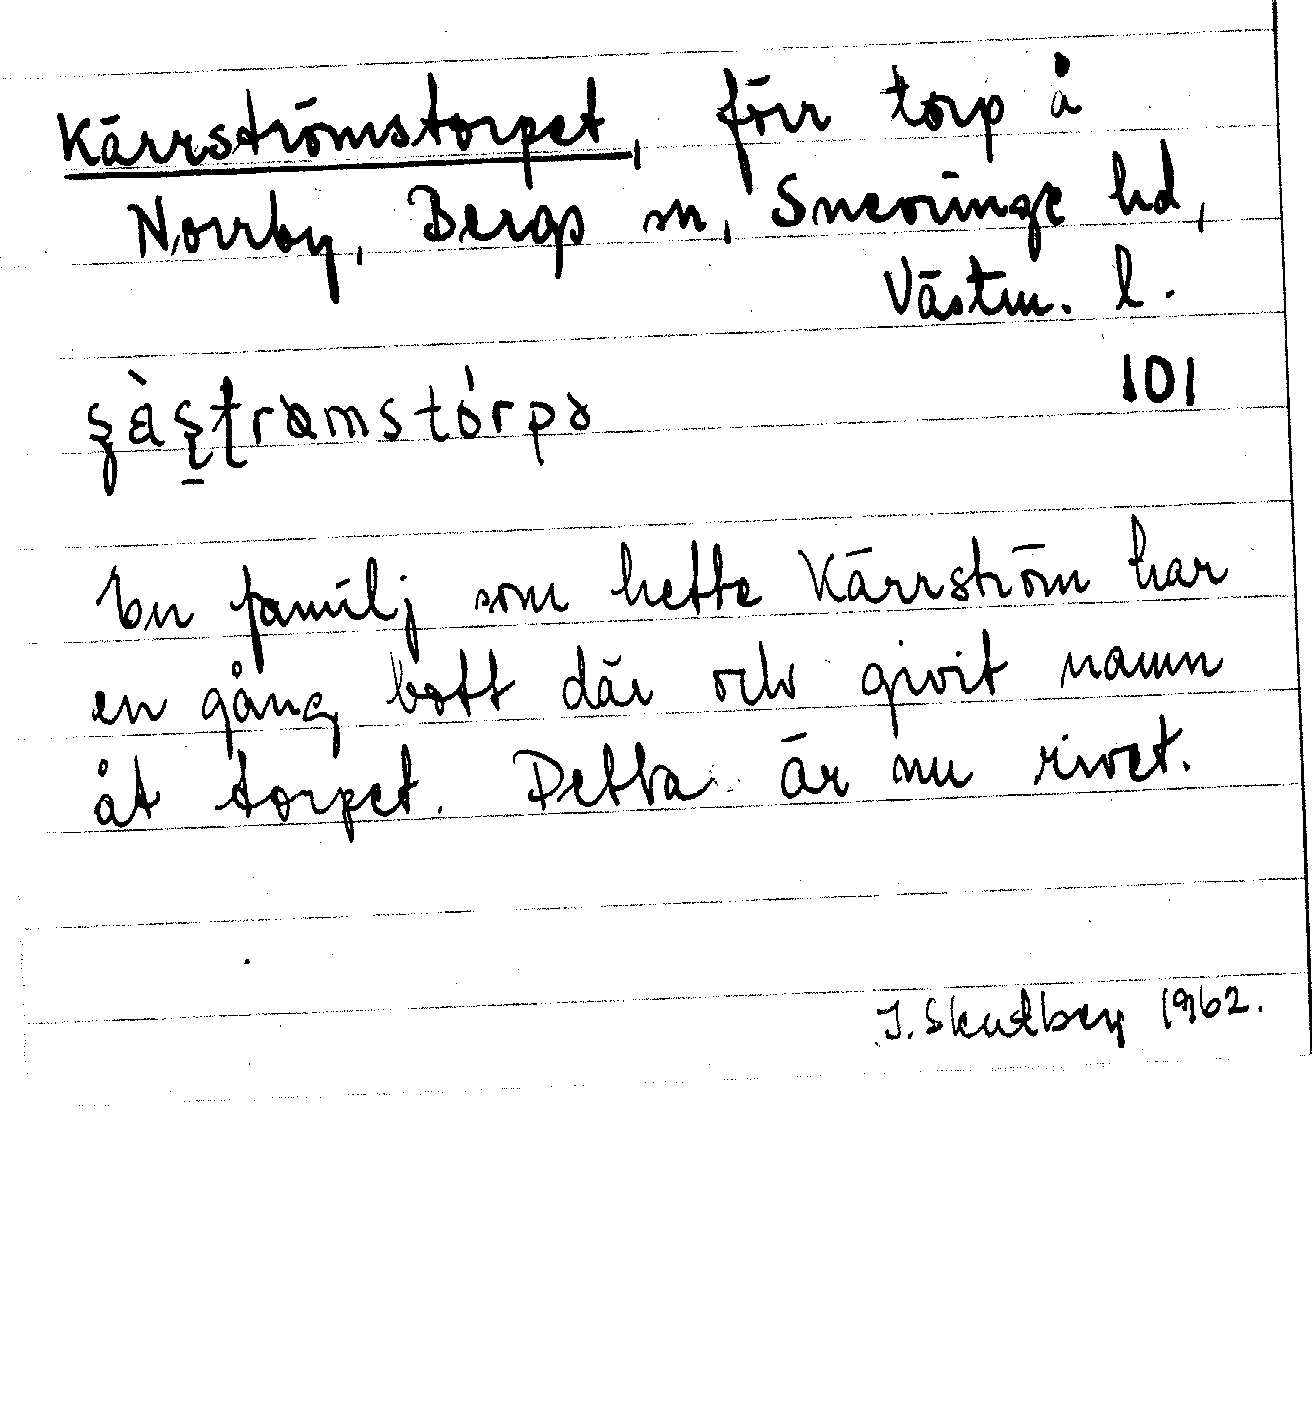 Kärrströmstorpet, förr torp å
Norrby, Bergs sn, Snevringe hd,
Västm. l.
101
En familj som hette Kärrström har
en gång bott där och givit namn
åt torpet. Detta är nu rivet.
J. Skutberg 1962.